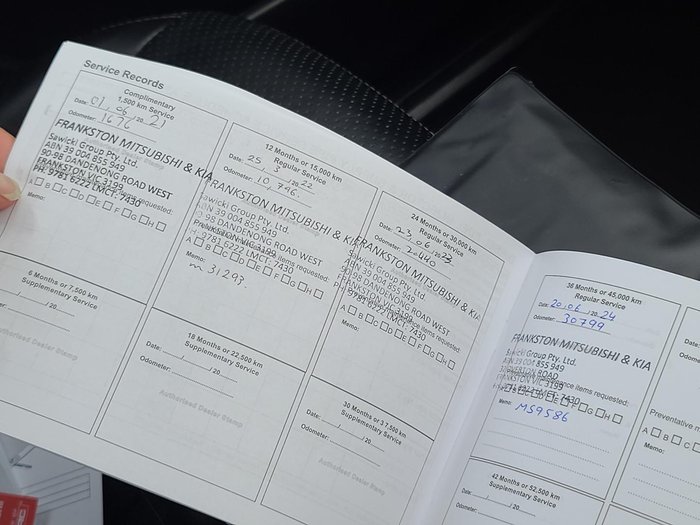 Service Records
Complimentary
1,500 km Service
Date: 01/06/20 21
Odometer: 1676
FRANKSTON MITSUBISHI & KIA
Sawicki Group Pty. Ltd.
ABN 39 004 855 949
90-98 DANDENONG ROAD WEST
FRANKSTON VIC 3199
PH: 9781 6222 LMCT: 7430
A B C D E F G H
Memo:
6 Months or 7,500 km
Supplementary Service
Date: / /20
Odometer:
Authorised Dealer Stamp
12 Months or 15,000 km
Regular Service
Date: 25/3/20 22
Odometer: 10,746.
FRANKSTON MITSUBISHI & KIA
Sawicki Group Pty. Ltd.
ABN 39 004 855 949
90-98 DANDENONG ROAD WEST
FRANKSTON VIC 3199
PH: 9781 6222 LMCT: 7430
A B C D E F G H
Memo:
m 31293.
18 Months or 22,500 km
Supplementary Service
Date: / /20
Odometer:
Authorised Dealer Stamp
24 Months or 30,000 km
Regular Service
Date: 23/06/20 23
Odometer: 20440
FRANKSTON MITSUBISHI & KIA
Sawicki Group Pty. Ltd.
ABN 39 004 855 949
90-98 DANDENONG ROAD WEST
FRANKSTON VIC 3199
PH: 9781 6222 LMCT: 7430
A B C D E F G H
Memo:
30 Months or 37,500 km
Supplementary Service
Date: / /20
Odometer:
Authorised Dealer Stamp
36 Months or 45,000 km
Regular Service
Date: 20/06/20 24
Odometer: 30799
FRANKSTON MITSUBISHI & KIA
Sawicki Group Pty. Ltd.
ABN 39 004 855 949
ROAD
FRANKSTON VIC 3199
LMCT: 7430
items requested:
B C D E F G H
Memo: M59586
42 Months or 52,500 km
Supplementary Service
Date: / /20
Odometer:
Date:
Odometer:
Preventative
A B C
Memo:
Date: